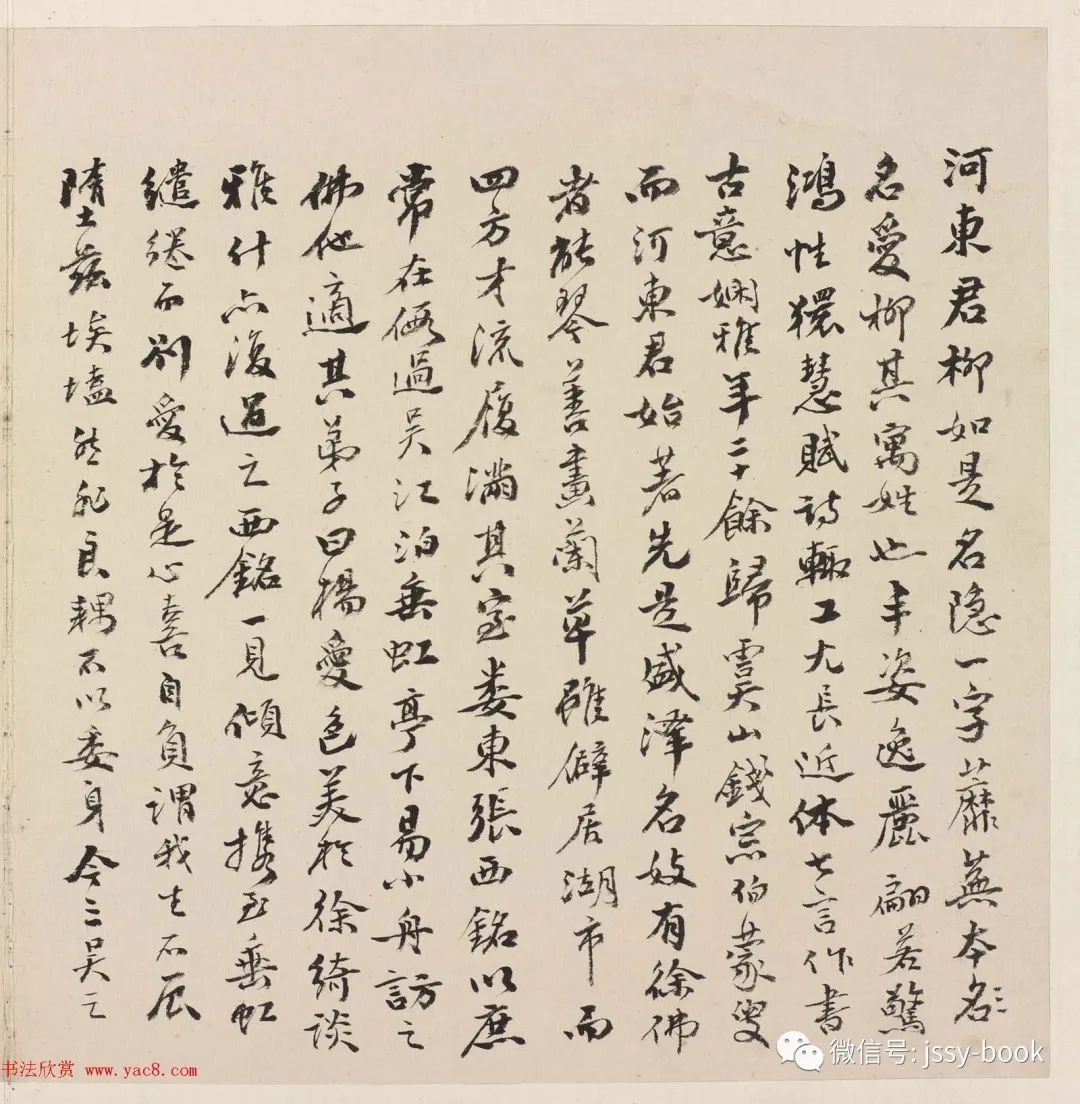 河東君柳如是名隱一字蘼蕪本名〻
名愛柳其寓姓也丰姿逸麗翩若驚
鴻性獧慧賦詩輒工尤長近体七言作書
古意嫻雅年二十餘歸雲山錢宗伯蒙叟
而河東君始著先是盛澤名妓有徐佛
者能琴善畫蘭草雖僻居湖市而
四方才流履滿其室娄東張西銘以庶
常在假過吴江泊垂虹亭下易小舟訪之
佛他適其弟子曰楊愛色美於徐綺談
雅什亦復過之西銘一見傾意携至垂虹
繾綣而别愛於是心喜自負謂我生不辰
墮兹埃壒然非良耦不以委身今三吴之
微信号: jssy-book
书法欣赏 www.yac8.com